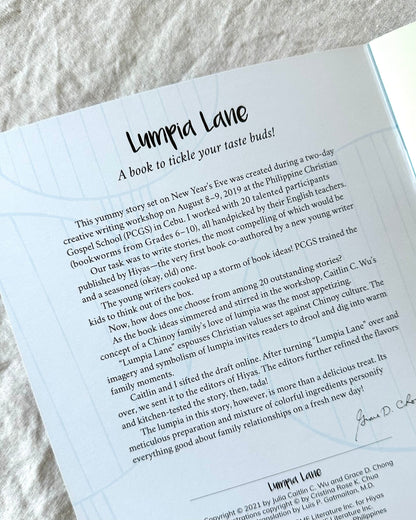 Lumpia Lane
A book to tickle your taste buds!
This yummy story set on New Year's Eve was created during a two-day
creative writing workshop on August 8–9, 2019 at the Philippine Christian
Gospel School (PCGS) in Cebu. I worked with 20 talented participants
(bookworms from Grades 6–10), all handpicked by their English teachers.
Our task was to write stories, the most compelling of which would be
published by Hiyas—the very first book co-authored by a new young writer
and a seasoned (okay, old) one.
The young writers cooked up a storm of book ideas! PCGS trained the
kids to think out of the box.
Now, how does one choose from among 20 outstanding stories?
As the book ideas simmered and stirred in the workshop, Caitlin C. Wu's
concept of a Chinoy family's love of lumpia was the most appetizing.
"Lumpia Lane" espouses Christian values set against Chinoy culture. The
imagery and symbolism of lumpia invites readers to drool and dig into warm
family moments.
Caitlin and I sifted the draft online. After turning "Lumpia Lane" over and
over, we sent it to the editors of Hiyas. The editors further refined the flavors
and kitchen-tested the story, then, tada!
The lumpia in this story, however, is more than a delicious treat. Its
meticulous preparation and mixture of colorful ingredients personify
everything good about family relationships on a fresh new day!
Grace D. Chong
Lumpia Lane
Copyright © 2021 by Julia Caitlin C. Wu and Grace D. Chong
Illustrations copyright © by Cristina Rose K. Chua
Translation by Luis P. Gatmaitan, M.D.
Literature Inc. for Hiyas
Literature Inc.
Philippines